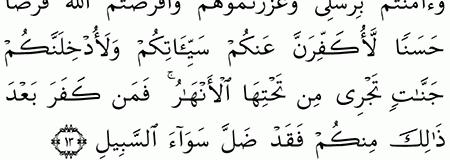 وَءَامَنتُم بِرُسُلِى وَعَزَّرْتُمُوهُمْ وَأَقْرَضْتُمُ ٱللَّهَ قَرْضًا
حَسَنًا لَّأُكَفِّرَنَّ عَنكُمْ سَيِّـَٔاتِكُمْ وَلَأُدْخِلَنَّكُمْ
جَنَّـٰتٍ تَجْرِى مِن تَحْتِهَا ٱلْأَنْهَـٰرُ ۚ فَمَن كَفَرَ بَعْدَ
ذَٰلِكَ مِنكُمْ فَقَدْ ضَلَّ سَوَآءَ ٱلسَّبِيلِ ١٢